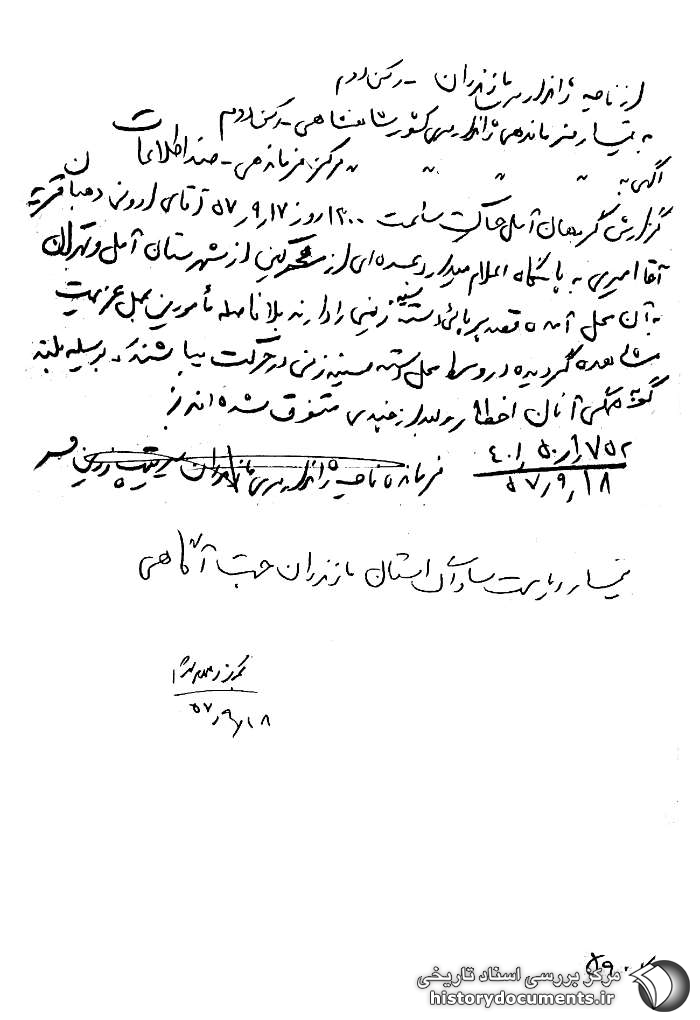 از ناحیه ژاندارمری مازندران - رکن دوم
به تیمسار فرماندهی ژاندارمری کشور شاهنشاهی - رکن دوم
آگهی به " " " مرکز فرماندهی - ضد اطلاعات
گزارش گروهان آمل حاکیست ساعت ۱۲۰۰ روز ۵۷٫۹٫۱۷ آقای دهبان قریه
آقا امیری به پاسگاه اعلام میدارد عده‌ای از از شهرستان آمل و تهران
به آن محل آمده قصد برپائی دسته سینه زنی را دارند بلافاصله مأمورین بمحل عزیمت
مشاهده گردیده در وسط محل دسته سینه زنی در حرکت میباشند. بوسیله بلند
گو دستی آنان اخطار و بعد از چندی متفرق شده‌اند ژ
۴۰۱٫۵۰٫۱٫۷۵۲
۵۷٫۹٫۱۸
فرمانده ناحیه ژاندارمری مازندران سرتیپ
تیمسار ریاست ساواک استان مازندران جهت آگاهی
۵۷٫۹٫۱۸
مرکز بررسی اسناد تاریخی
historydocuments.ir